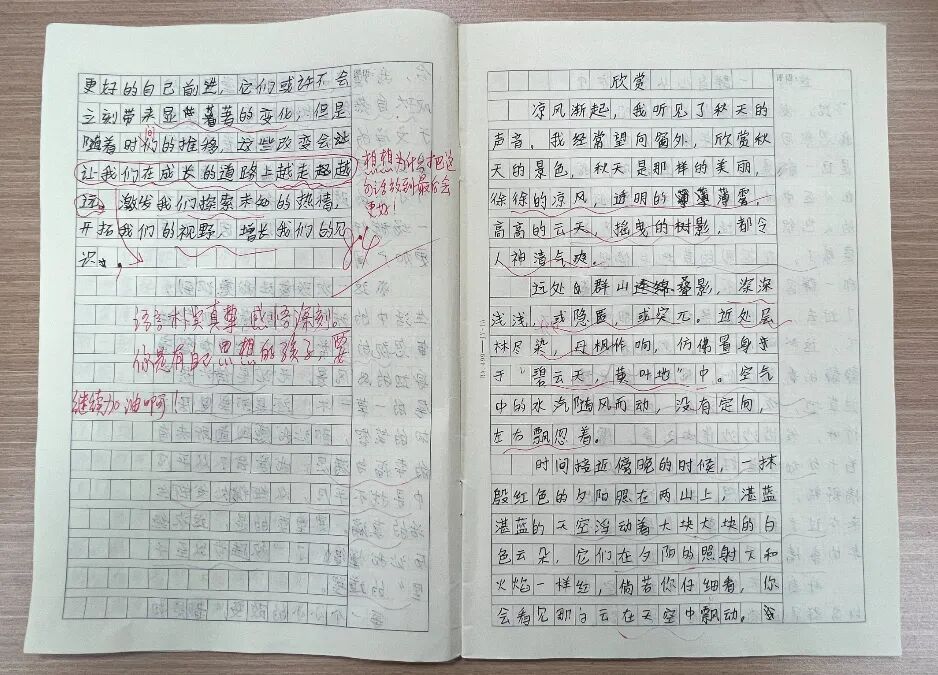 更好的自己前进。它们或许不会
立刻带来显著的变化，但是
随着时间的推移，这些改变会
让我们在成长的道路上越走越
远。激发我们探索未知的热情，
开拓我们的视野，增长我们的见
识。
想想为什么把这
句话放到最后会
更好！
语言朴实真挚，感悟深刻。
你是有自己思想的孩子，要
继续加油啊！
欣赏
凉风渐起，我听见了秋天的
声音。我经常望向窗外，欣赏秋
天的景色，秋天是那样的美丽，
徐徐的凉风，透明的薄雾，
高高的云天，摇曳的树影，都令
人神清气爽。
远处的群山连绵叠影，深深
浅浅，或隐匿，或突兀。近处层
林尽染，丹枫作响，仿佛置身
于“碧云天，黄叶地”中。空气
中的水汽随风而动，没有定向，
左右飘忽着。
时间接近傍晚的时候，一抹
殷红色的夕阳照在两山上，湛蓝
湛蓝的天空浮动着大块大块的白
色云朵，它们在夕阳的照射下和
火焰一样红，倘若你仔细看，你
会看见那白云在天空中飘动。